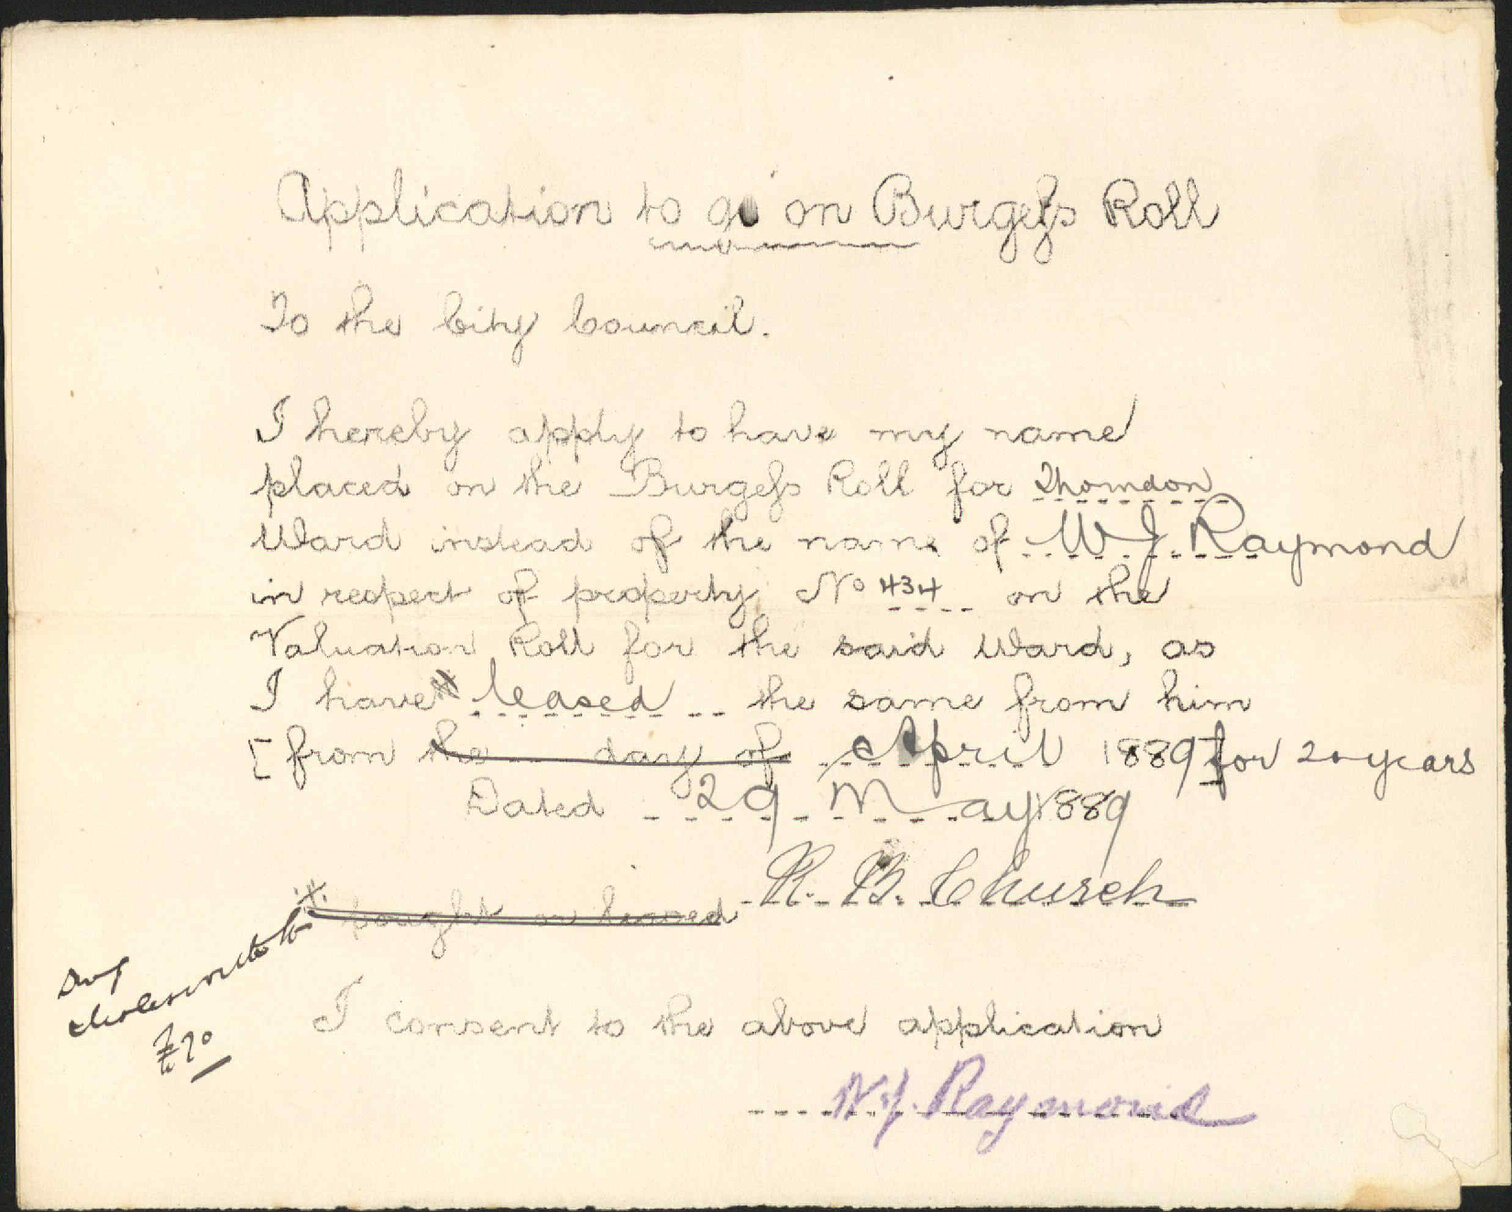 Application to go on Burgess Roll
To the City Council.
I hereby apply to have my name
placed on the Burgess Roll for Thorndon
Ward instead of the name of W J Raymond
in respect of property No 434 on the
Valuation Roll for the said Ward, as
I have * leased the same from him
[from the day of April 1889] for 20 years
Dated 29 May 1889
R. B. Church
* bought or leased
£70
I consent to the above application
W. J. Raymond